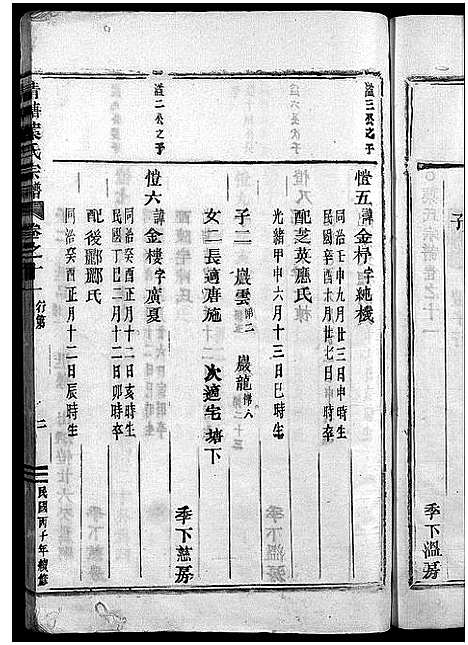 子
季下溫房
諡三公之子
愷五諱金桴字純機
同治壬申九月廿三日申時生
民國辛酉永月廿七日申時卒
配芝英應氏
光緒甲申六月十三日巳時生
子二 巖雲第二 巖龍
女二長適唐施 次適宅塘下
諡二公之子
愷六諱金樓字廣夏
同治癸酉正月十二日亥時生
民國丁巳二月十二日卯時卒
配後酈酈氏
同治癸酉正月十二日辰時生
季下慈房
氏宗譜
卷之十一
行第
二
民國丙子年續修